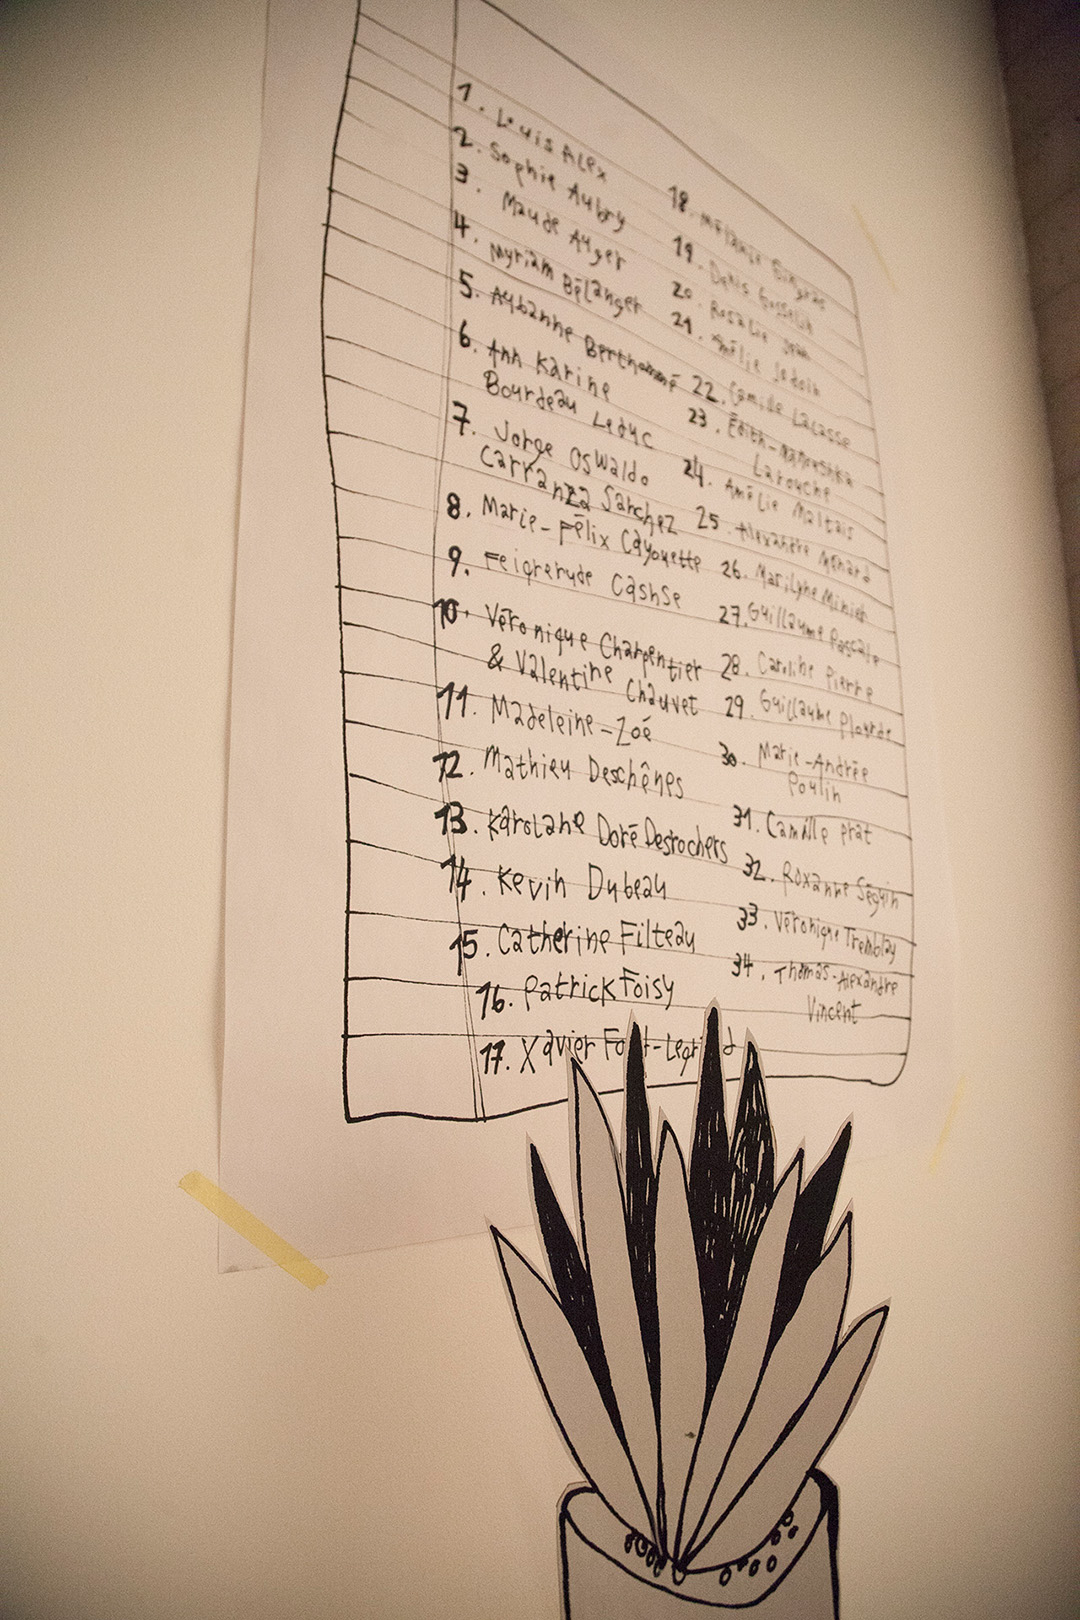 1. Louis Alex
2. Sophie Aubry
3. Maude Auger
4. Myriam Bélanger
5. Aubanne Berthommé
6. Ann Karine
Bourdeau Leduc
7. Jorge Oswaldo
Carranza Sanchez
8. Marie-Félix Cayouette
9. Feigrerude Cashse
10. Véronique Charpentier
& Valentine Chauvet
11. Madeleine-Zoé
12. Mathieu Deschênes
13. Karolane Doré Desrochers
14. Kevin Dubeau
15. Catherine Filteau
16. Patrick Foisy
17. Xavier
18. Mélanie Gingras
19. Denis Gosselin
20. Rosalie Jean
21. Amélie Jodoin
22. Camille Lacasse
23. Édith-Manoushka
Larouche
24. Amélie Maltais
25. Alexandre Ménard
26. Marilyne Minier
27. Guillaume Pascale
28. Caroline Pierre
29. Guillaume Plourde
30. Marie-Andrée
Poulin
31. Camille Prat
32. Roxanne Séguin
33. Véronique Tremblay
34. Thomas-Alexandre
Vincent